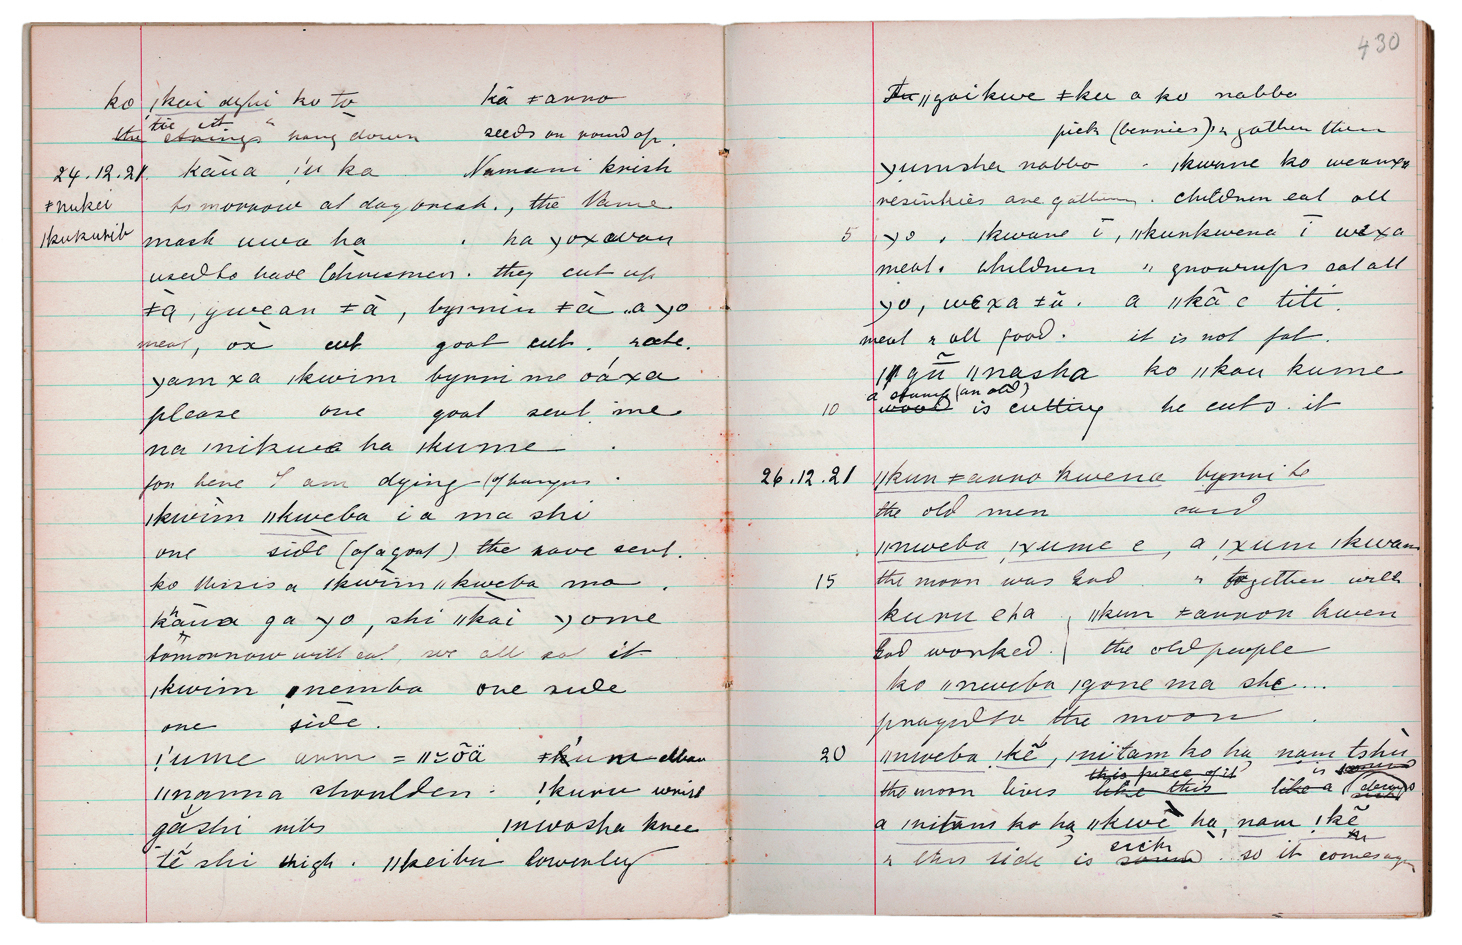 ko ǀkai dyui ko to kā ǂanno
the tie it strings hang down seeds on round of.
24.12.21. kāua ǃu ka Namani krish
ǂnukei tomorrow at daybreak., the Name
ǀkukurib mash uwa ha . ha yoxawan
used to have Christmen. they cut up
ǂā, gwean ǂā, byrrin ǂā a yo
meat, ox cut goat cut. eate.
yam xa ǀkwim byrri me oáxa
please one goat sent me
na ǀnikwe ha ǀkume .
for here I am dying (of hunger .
ǀkwim ǁkweba i a ma shi
one side (of a goat) the have sent.
ko Missis a ǀkwim ǁkweba ma .
kāua ga yo, shi ǁkai yome
tomorrow will eat, we all eat it
ǀkwim ǀnemba one side
one side.
ǃume arm = ǁõä ǂkum elbow
ǁnanna shoulder. ǃkuru wrist
gāshi ribs ǀnwasha knee
tē shi thigh. ǁkeibu lowerleg
430
ǁgaikwe ǂku a ko nabba
pick (berries) & gather them
yumsha nabba . ǀkwane ko weanxa
resinkies are gathering. children eat all
5 yo . ǀkwane ī, ǁkunkwena ī wexa
meat. children " grownups eat all
yo, wexa ǂū. a ǁkā e titi.
meat & all food. it is not fat.
ǁgū ǁnasha ko ǁkau kume
a stump (an old)
10 wood is cutting he cuts it
26.12.21 ǁkun ǂanno kwena byrri to
the old men said
ǁnweba ǃxume e, a ǃxum ǀkwam
15 the moon was God & together with
kuru eha ǁkun ǂannon kwen
God worked. the old people
ko ǁnweba ǀgone ma she...
prayed to the moon .
20 ǁnweba ǀkē, ǀnitam ko ha, nam tshù
this piece of it is
the moon lives like this like a
a ǀnitans ko ha ǁkwē ha, nam ǀkē
sick
& this side is sound. so it comes again